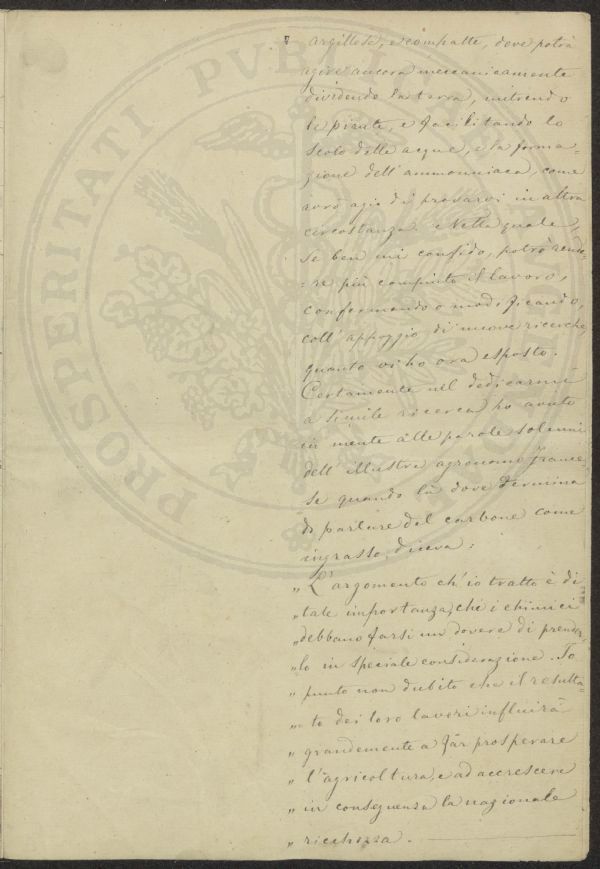 argillose, e compatte, dove potrà
agire ancora meccanicamente
dividendo la terra, nutrendo
le piante, e facilitando lo
scolo delle acque, e la forma=
zione dell'ammoniaca, come
avrò agio di provarvi in altra
circostanza. Nella quale,
se ben mi confido, potrò rende
=re più compiuto il lavoro,
confermando o modificando,
coll'appoggio di nuove ricerche,
quanto vi ho ora esposto.
Certamente nel dedicarmi
a simile ricerca ho avuto
in mente alle parole solenni
dell'illustre agronomo france=
se quando là dove termina
di parlare del carbone come
ingrasso, diceva:
„ L'argomento ch'io tratto è di
„ tale importanza, che i chimici
„ debbano farsi un dovere di prender
„ lo in speciale considerazione. Io
„ punto non dubito che il resulta=
„ to dei loro lavori influirà
„ grandemente a far prosperare
„ l'agricoltura, e ad accrescere
„ in conseguenza la nazionale
„ ricchezza.
PROSPERITATI PVBL